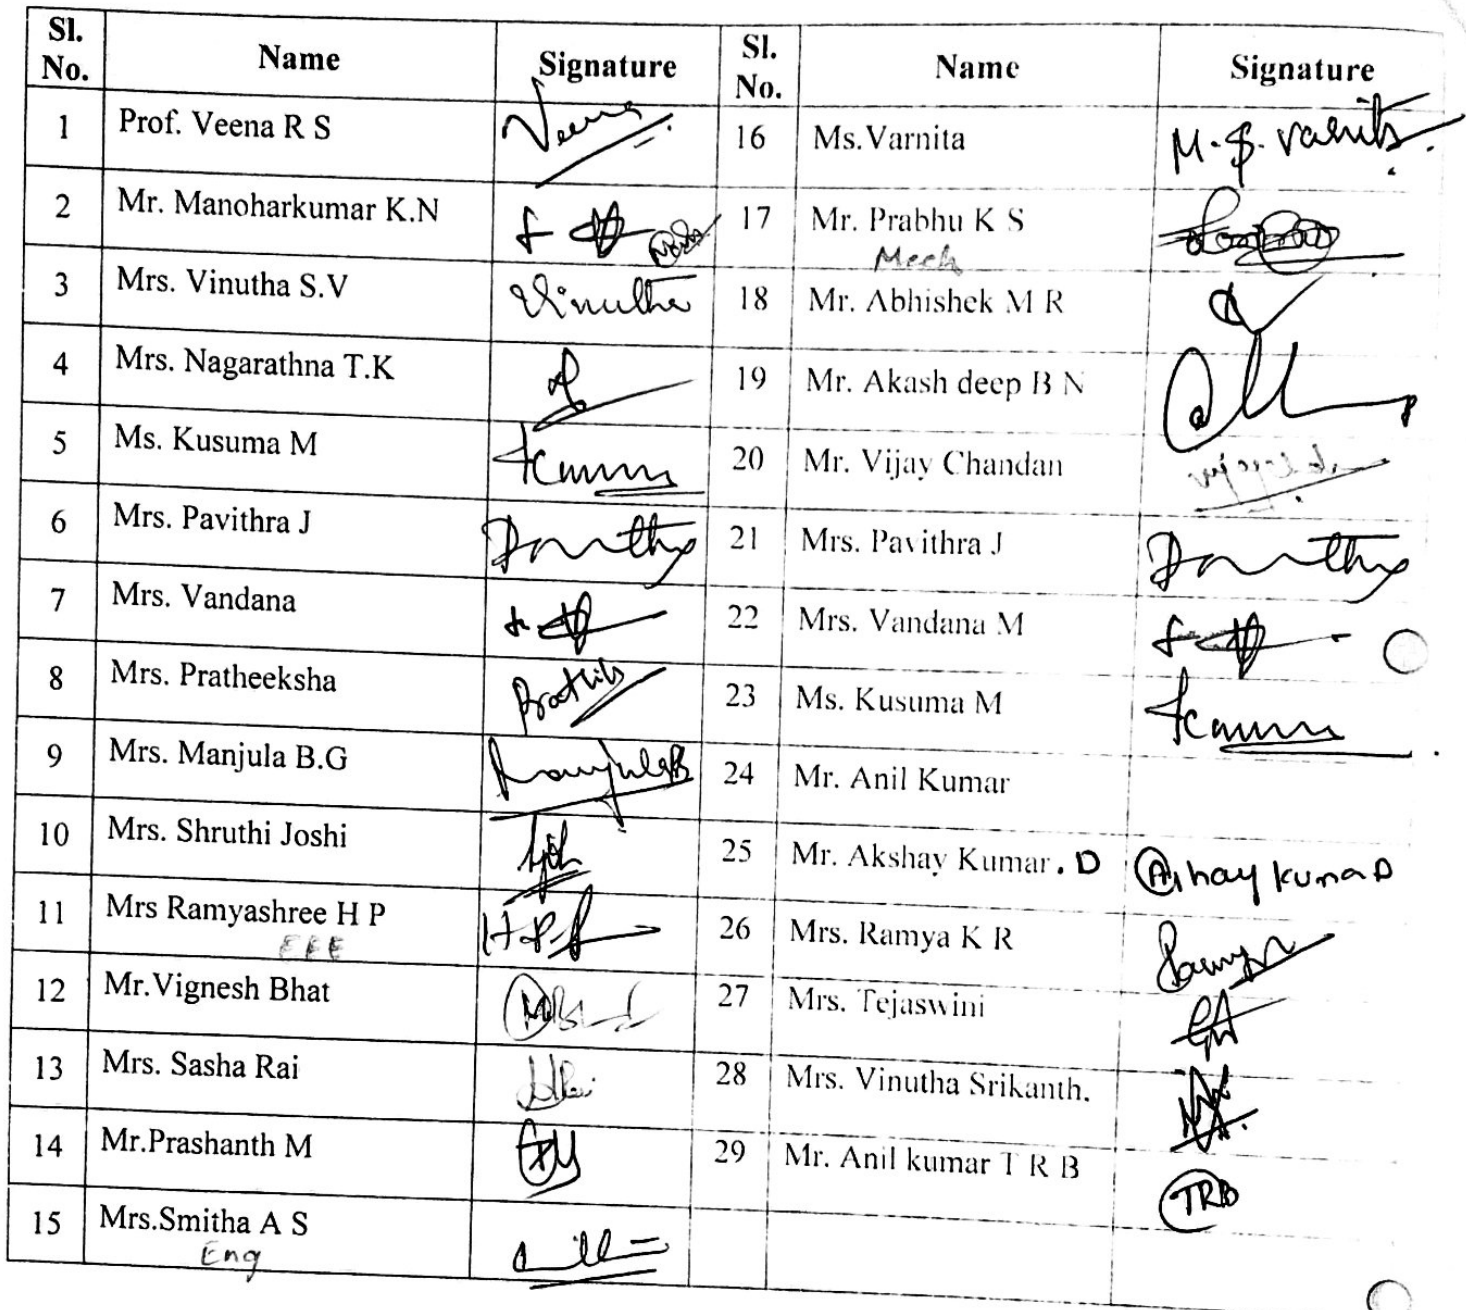 Sl. No. Name Signature Sl. No. Name Signature
1 Prof. Veena R S Veena 16 Ms.Varnita M.S. Varnita
2 Mr. Manoharkumar K.N 17 Mr. Prabhu K S
Mech
3 Mrs. Vinutha S.V Vinutha 18 Mr. Abhishek M R
4 Mrs. Nagarathna T.K 19 Mr. Akash deep B N
5 Ms. Kusuma M 20 Mr. Vijay Chandan
6 Mrs. Pavithra J 21 Mrs. Pavithra J
7 Mrs. Vandana 22 Mrs. Vandana M
8 Mrs. Pratheeksha 23 Ms. Kusuma M
9 Mrs. Manjula B.G 24 Mr. Anil Kumar
10 Mrs. Shruthi Joshi 25 Mr. Akshay Kumar. D
11 Mrs Ramyashree H P 26 Mrs. Ramya K R
EEE
12 Mr.Vignesh Bhat 27 Mrs. Tejaswini
13 Mrs. Sasha Rai 28 Mrs. Vinutha Srikanth.
14 Mr.Prashanth M 29 Mr. Anil kumar T R B TRB
15 Mrs.Smitha A S
Eng